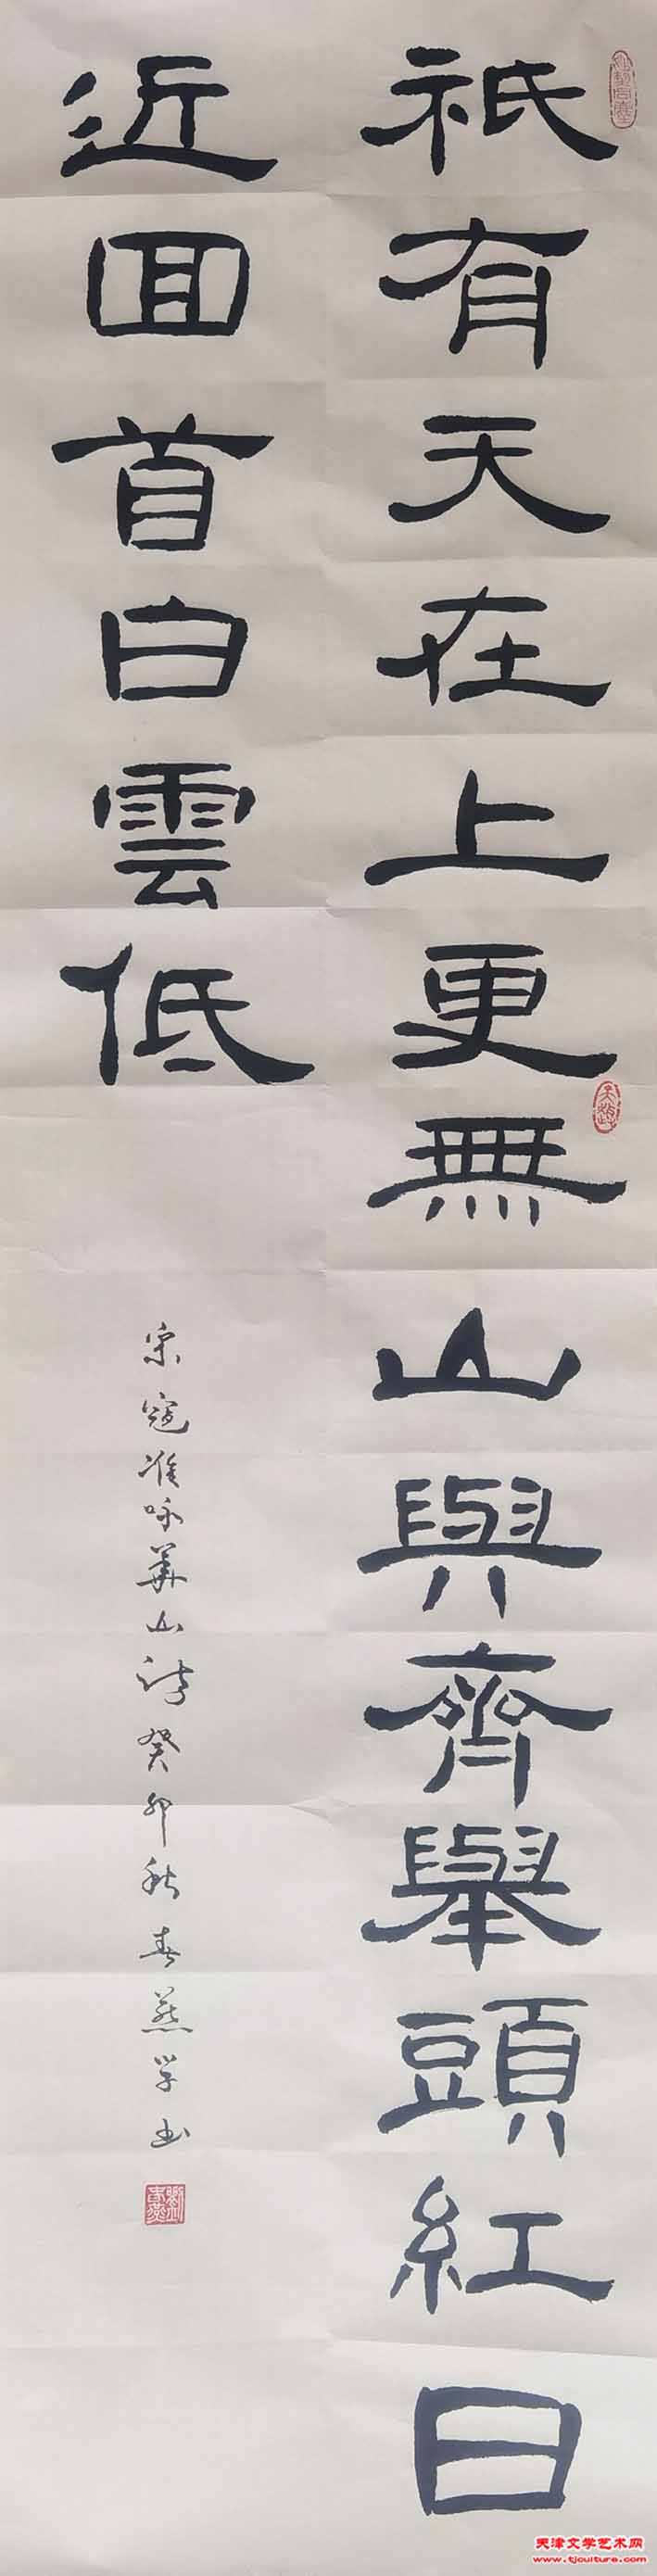 祇有天在上更無山與齊舉頭紅日
近回首白雲低
宋寇准咏華山詩癸卯秋春燕学书
天津文学艺术网
www.tjculture.com